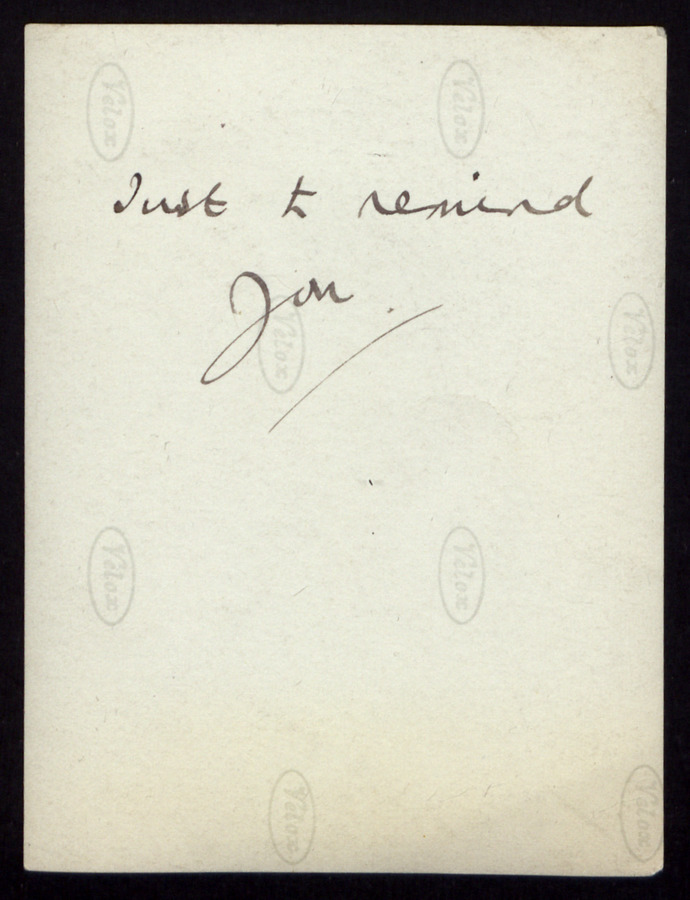 Velox Velox
Just to remind
you.
Velox Velox
Velox Velox
Velox Velox